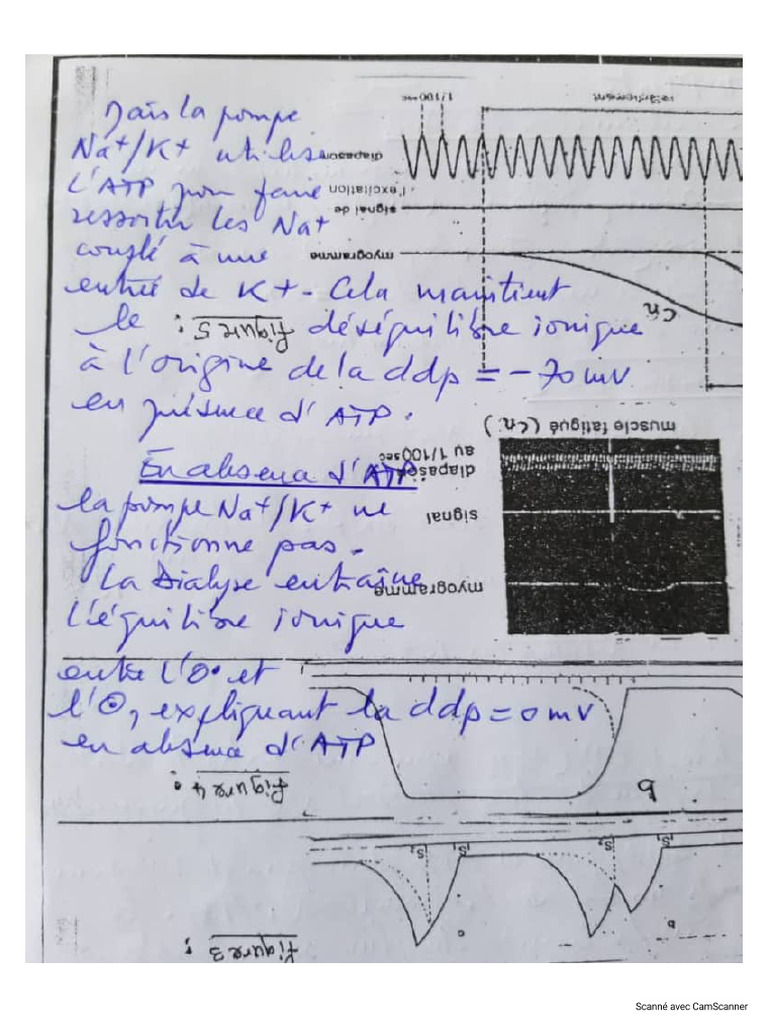 Mais la pompe
Na+/K+ utilise
L'ATP pour faire
ressortir les Na+
couplé à une
entrée de K+ - Cela maintient
le déséquilibre ionique
à l'origine de la ddp = -70 mV
en présence d'ATP.
En absence d'ATP
la pompe Na+/K+ ne
fonctionne pas.
La Dialyse entraîne
l'équilibre ionique
entre l'
et
l'
, expliquant la ddp = 0 mV
en absence d'ATP
1/100
diapason
signal de
l'excitation
myogramme
Cn
figure 5 :
muscle fatigué (Cn)
diapason
au 1/100sec
signal
myogramme
figure 4 :
b
S2
S1
S2
S1
a
figure 3 :
Scanné avec CamScanner